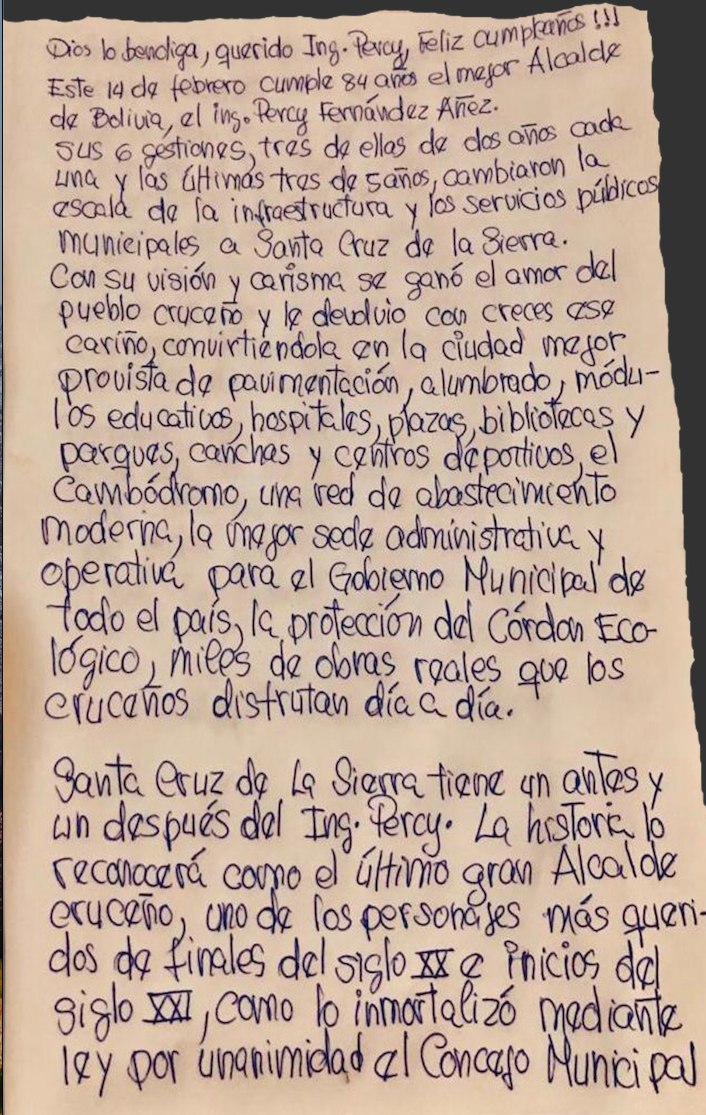 Dios lo bendiga, querido Ing. Percy, Feliz cumpleaños !!!
Este 14 de febrero cumple 84 años el mejor Alcalde
de Bolivia, el ing. Percy Fernández Añez.
sus 6 gestiones, tres de ellas de dos años cada
una y las últimas tres de 5 años, cambiaron la
escala de la infraestructura y los servicios públicos
municipales a Santa Cruz de la Sierra.
Con su visión y carisma se ganó el amor del
pueblo cruceño y le devolvio con creces ese
cariño, convirtiendola en la ciudad mejor
provista de pavimentación, alumbrado, módu-
los educativos, hospitales, plazas, bibliotecas y
parques, canchas y centros deportivos, el
Cambódromo, una red de abastecimiento
moderna, la mejor sede administrativa y
operativa para el Gobierno Municipal de
todo el país, la protección del Córdon Eco-
lógico, miles de obras reales que los
cruceños disfrutan día a día.
Santa Cruz de La Sierra tiene un antes y
un después del Ing. Percy. La historia lo
reconocerá como el último gran Alcalde
cruceño, uno de los personajes más queri-
dos de finales del siglo XX e inicios del
siglo XXI, como lo inmortalizó mediante
ley por unanimidad el Concejo Municipal